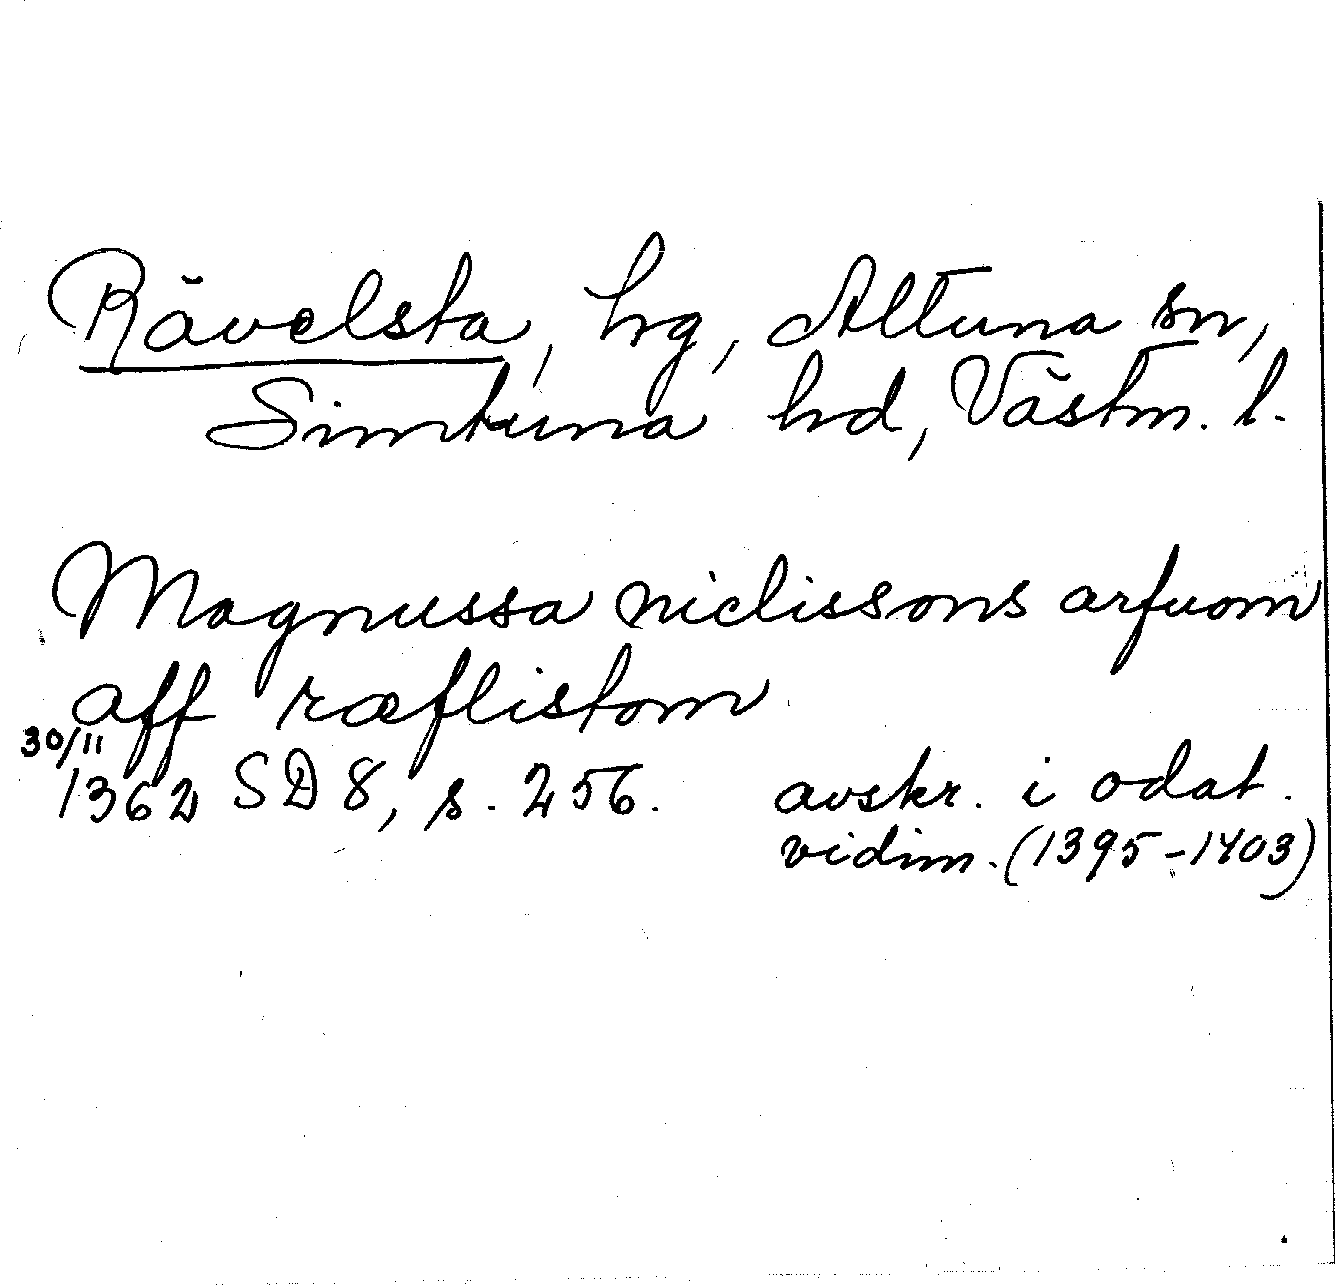 Rävelsta, hg, Altuna sn,
Simtuna hd, Västm. l.
Magnussa niclissons arfuom
aff ræflistom
30/11
1362 SD 8, s. 256. avskr. i odat.
vidim. (1395-1403)